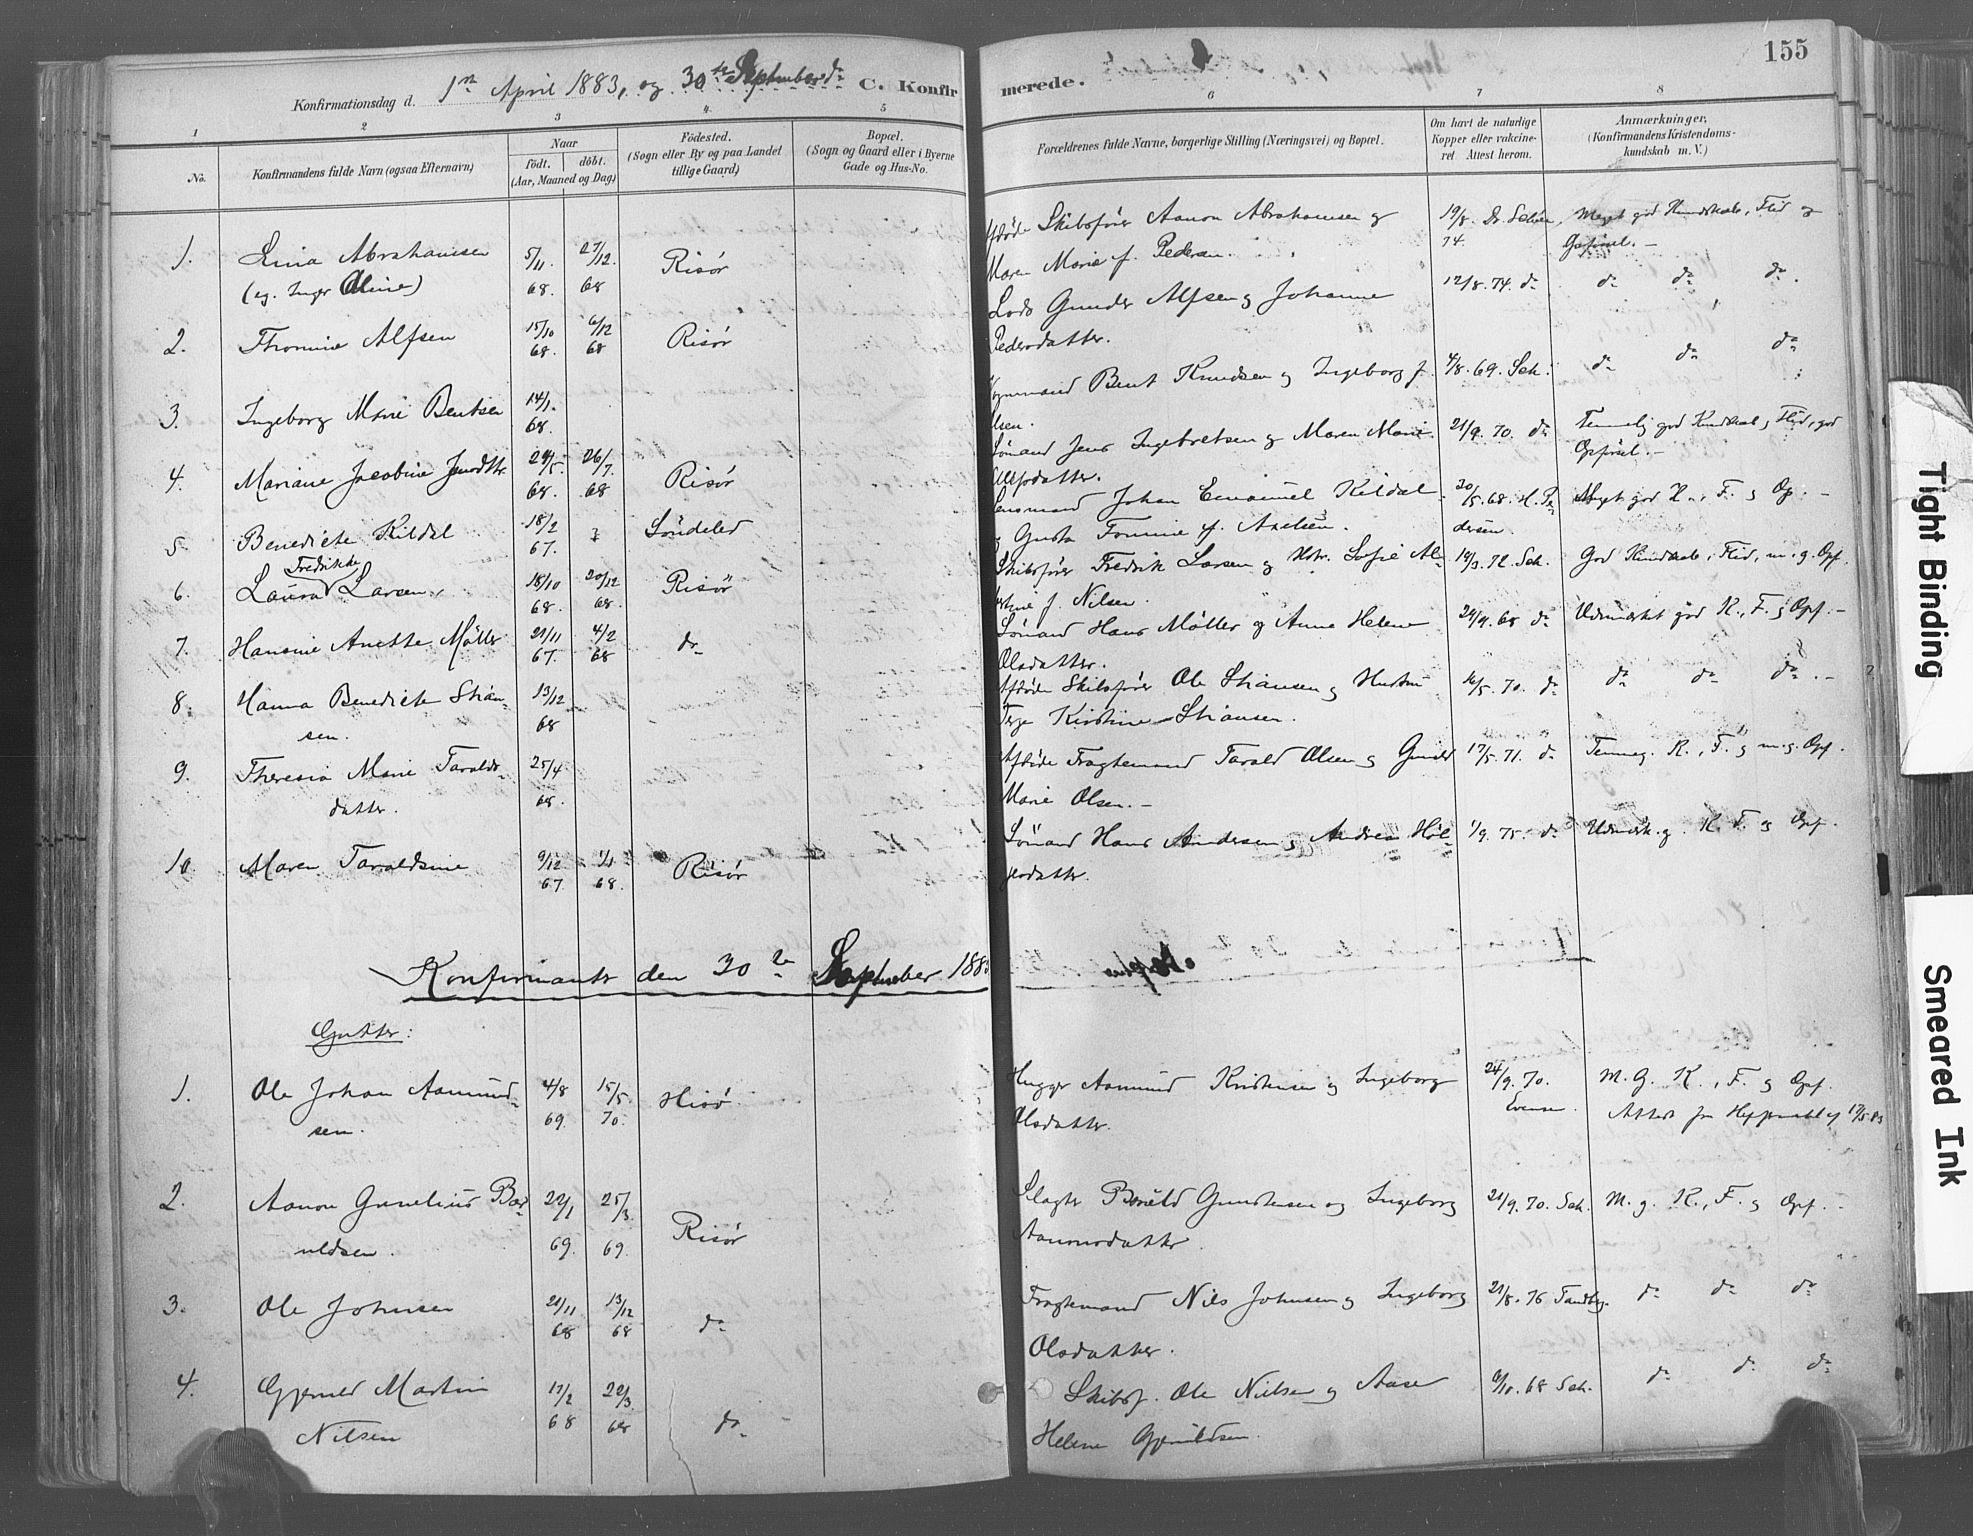 155
Konfirmationsdag d. 1st April 1883, og 30te September do C. Konfirmerede.
1 2 3 4 5 6 7 8
No.
Konfirmandens fulde Navn (ogsaa Efternavn)
Naar
födt. döbt.
(Aar, Maaned og Dag)
Födested.
(Sogn eller By og paa Landet
tillige Gaard)
Bopæl.
(Sogn og Gaard eller i Byerne
Gade og Hus-No.
Forældrenes fulde Navne, borgerlige Stilling (Næringsvei) og Bopæl.
Om havt de naturlige
Kopper eller vakcine-
ret Attest herom.
Anmærkninger,
(Konfirmandens Kristendoms-
kundskab m. V.)
1. Lina Abrahamsen 5/11. 27/12. Risør Skibsfører Aanon Abrahamsen og 19/8. Dr. Meget god Kundskab, Flid og
(eg. Inger Oline) 68. 68 Maren Marie f. Pedersen. 74.
2. Thomine Alfsen 15/10 6/12 Risør Lods Gunder Alfsen og Johanne 12/8. 74. do do do do.
68. 68 Pedersdatter.
3. Ingeborg Marie Bentsen 14/1. Bent Knudsen og Ingeborg f. 4/8. 69. Sch. do do do
68.
4. Mariane Jacobine 24/5. 26/7. Risør Sømand Jens Ingebretsen og Maren Marie 21/9. 70. do Temmelig god Kundskab, Flid, god
68. 68
5. Benedicte Kildal 18/2 Søndeled Johan Emanuel Kildal 20/5. 68. H. Pe- Meget god K., F. og Op. -
67. f. Axelsen. dersen.
6. Laura Fredrikke Larsen, 18/10 20/12 Risør Skibsfører Fredrik Larsen og Hstr. Sofie Al- 14/3. 72. Sch. God Kundskab, Flid, m. g. Opf.
68. 68. f. Nilsen.
7. Hansine Anette Møller 21/11 4/2 do Sømand Hans Møller og Anne Helene 24/9. 68 do Udmærket god K., F. og Opf. -
67. 68 Olsdatter.
8. Hanna Benedicte Stian- 13/12 Afdøde Skibsfører Ole Stiansen og Hustru 16/5. 70. do do do do. -
sen. 68 Kirstine Stiansen.
9. Theresia Marie Taralds- 25/4 Afdøde Fragtemand Tarald Olsen og Gunild 17/5. 71. do Temmeg. K., F. og m. g. Opf.
datter. 68. Marie Olsen. -
10. Maren Taraldsine 9/12 1/1 Risør Sømand Hans Andersen og Andrea 1/9. 75. do Udmærk. g. K. F. og Opf.
67 68.
Konfirmanter den 30te September 1883
Gutter:
1. Ole Johan Aamund- 4/8 15/5. Hisø Hugger Aamund Kristensen og Ingeborg 24/9. 70. M. G. K., F. og Opf.
sen. 69. 70. Olsdatter. Evensen. Attest fra 17/5 83
2. Aanon Gunelius Bær- 22/1 25/3. Risør Slagter Gundersen og Ingeborg 21/9. 70. Sch. M. g. K., F. og Opf. -
uldsen. 69. 69. Aanonsdatter.
3. Ole Johnsen 21/11 13/12 do Fragtemand Nils Johnsen og Ingeborg 21/8. 76 Tandbg. do do do
68 68 Olsdatter.
4. Gjeruld Martin 17/2 22/3. do Skibsf. Ole Nilsen og Aase 9/10. 68 Sch. do do do
Nilsen 68 68 Helene Gjeruldsen.
Tight Binding
Smeared Ink